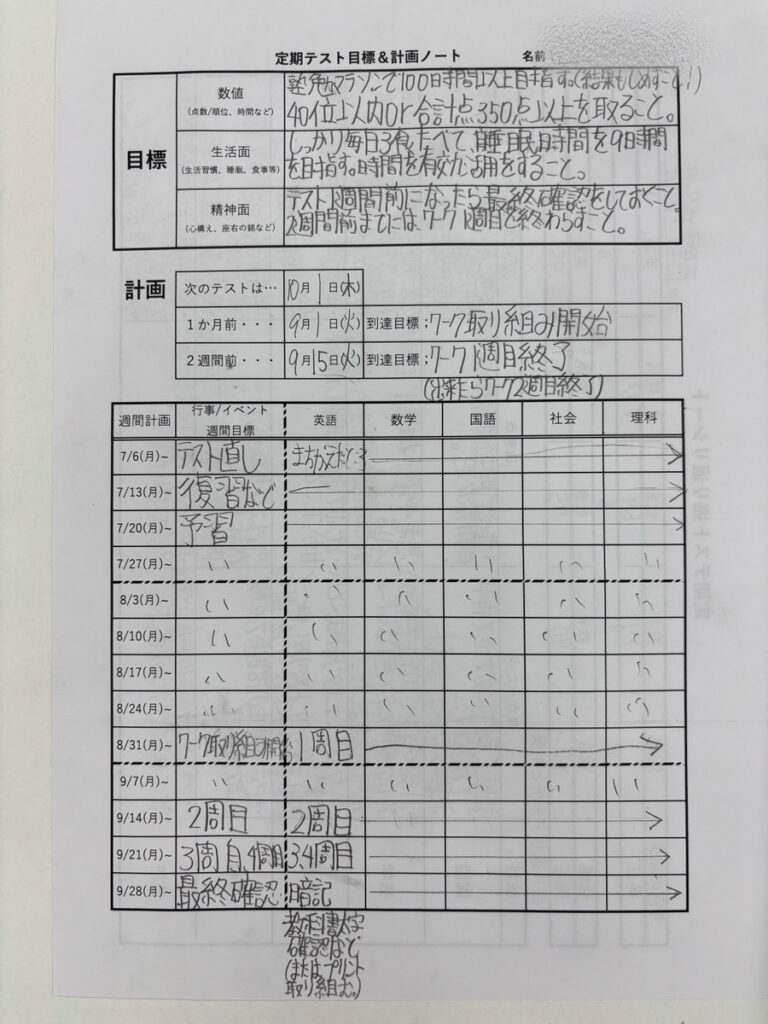 定期テスト目標＆計画ノート 名前
目標
数値
(点数/順位、時間など)
塾勉マラソンで100時間以上目指す。(結果もしめすこと!)
40位以内or合計点350点以上を取ること。
生活面
(生活習慣、睡眠、食事等)
しっかり毎日3食たべて、睡眠時間を9時間
を目指す。時間を有効活用をすること。
精神面
(心構え、座右の銘など)
テスト1週間前になったら最終確認をしておくこと。
2週間前までには、ワーク1週目を終わらすこと。
計画
次のテストは… 10月1日(木)
1か月前・・・ 9月1日(火) 到達目標；ワーク取り組み開始
2週間前・・・ 9月15日(火) 到達目標；ワーク1周目終了
(出来たらワーク2週目終了)
週間計画 行事/イベント 週間目標 英語 数学 国語 社会 理科
7/6(月)~ テスト直し まちがえたところ
7/13(月)~ 復習など
7/20(月)~ 予習
7/27(月)~ 〃 〃 〃 〃 〃 〃
8/3(月)~ 〃 〃 〃 〃 〃 〃
8/10(月)~ 〃 〃 〃 〃 〃 〃
8/17(月)~ 〃 〃 〃 〃 〃 〃
8/24(月)~ 〃 〃 〃 〃 〃 〃
8/31(月)~ ワーク取り組み開始 1周目
9/7(月)~ 〃 〃 〃 〃 〃 〃
9/14(月)~ 2周目 2周目
9/21(月)~ 3周目,4周目 3,4周目
9/28(月)~ 最終確認 暗記
教科書太字
確認など
(またはプリント
取り組む。)